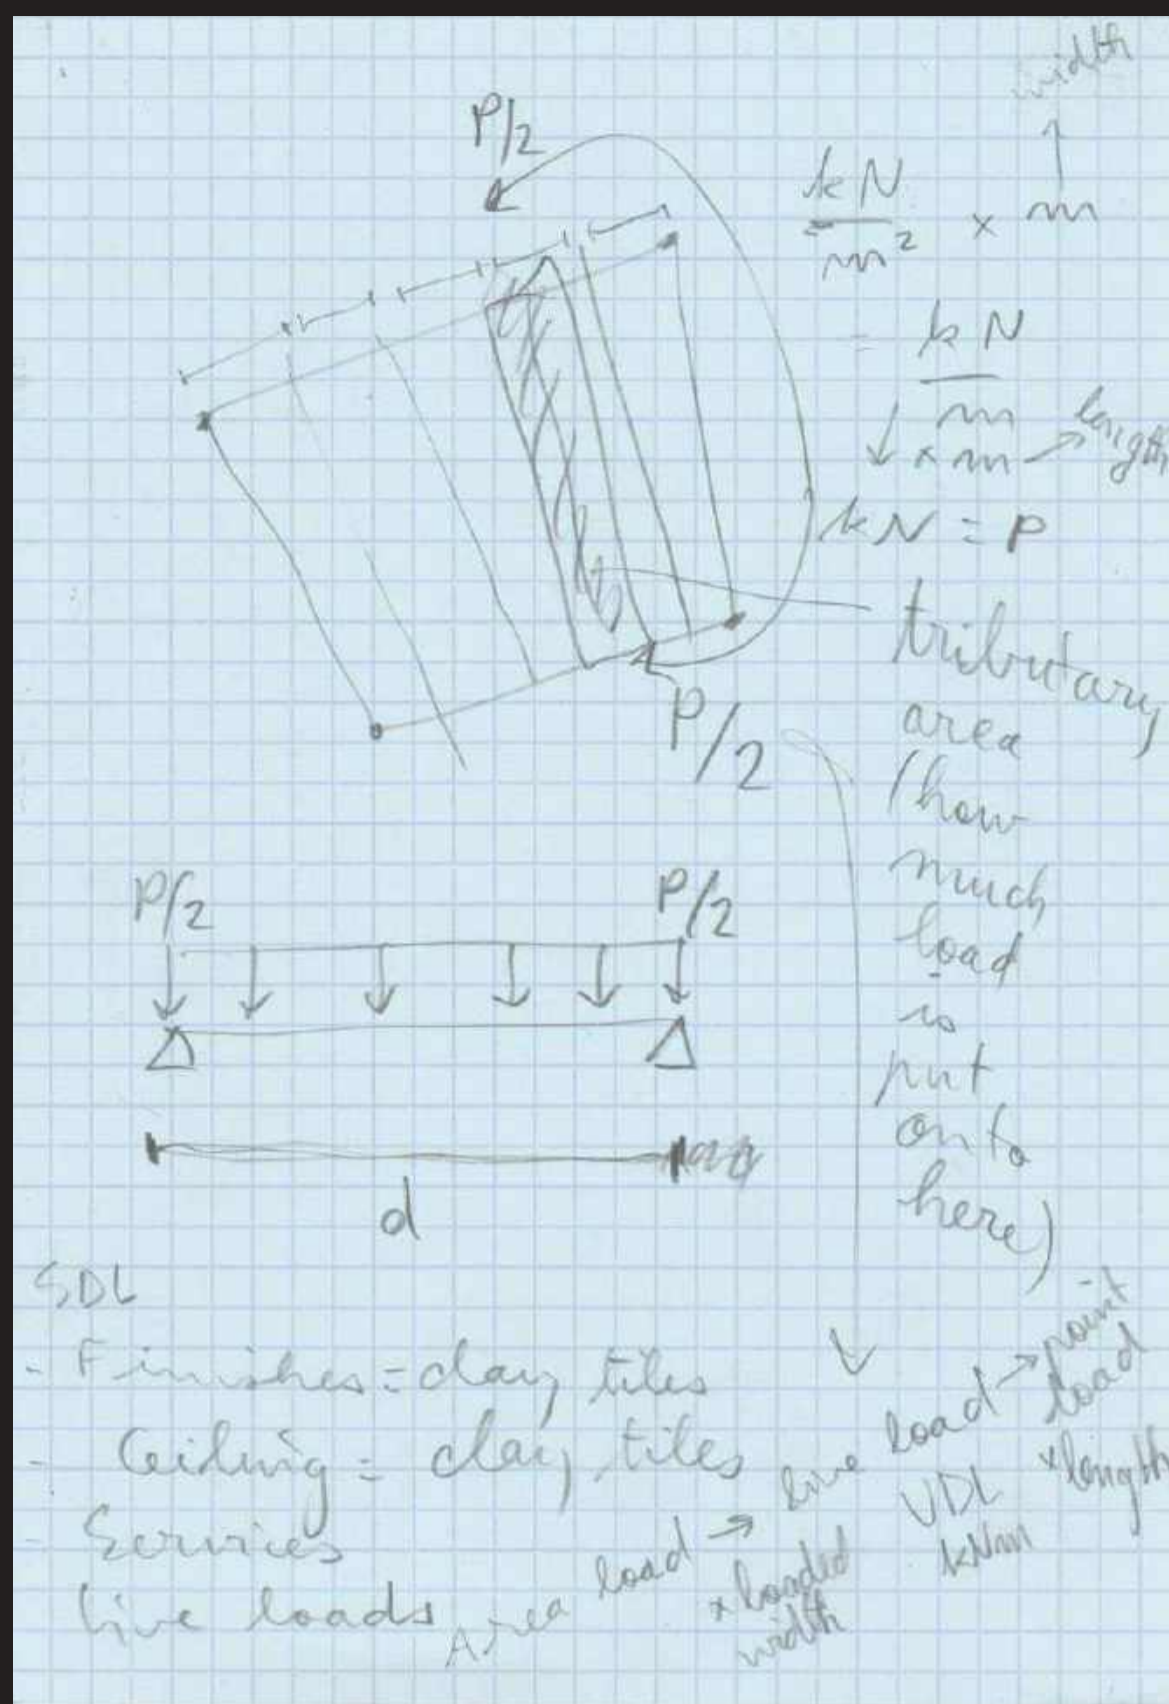 width
P/2
kN/m² × m
= kN/m
× m → length
kN = P
tributary
area
(how
much
load
is
put
onto
here)
P/2
P/2 P/2
d
SDL
- Finishes = clay tiles
- Ceiling = clay tiles
- Services
live loads
Area load → line load → point load
× loaded width
UDL
kNm
× length